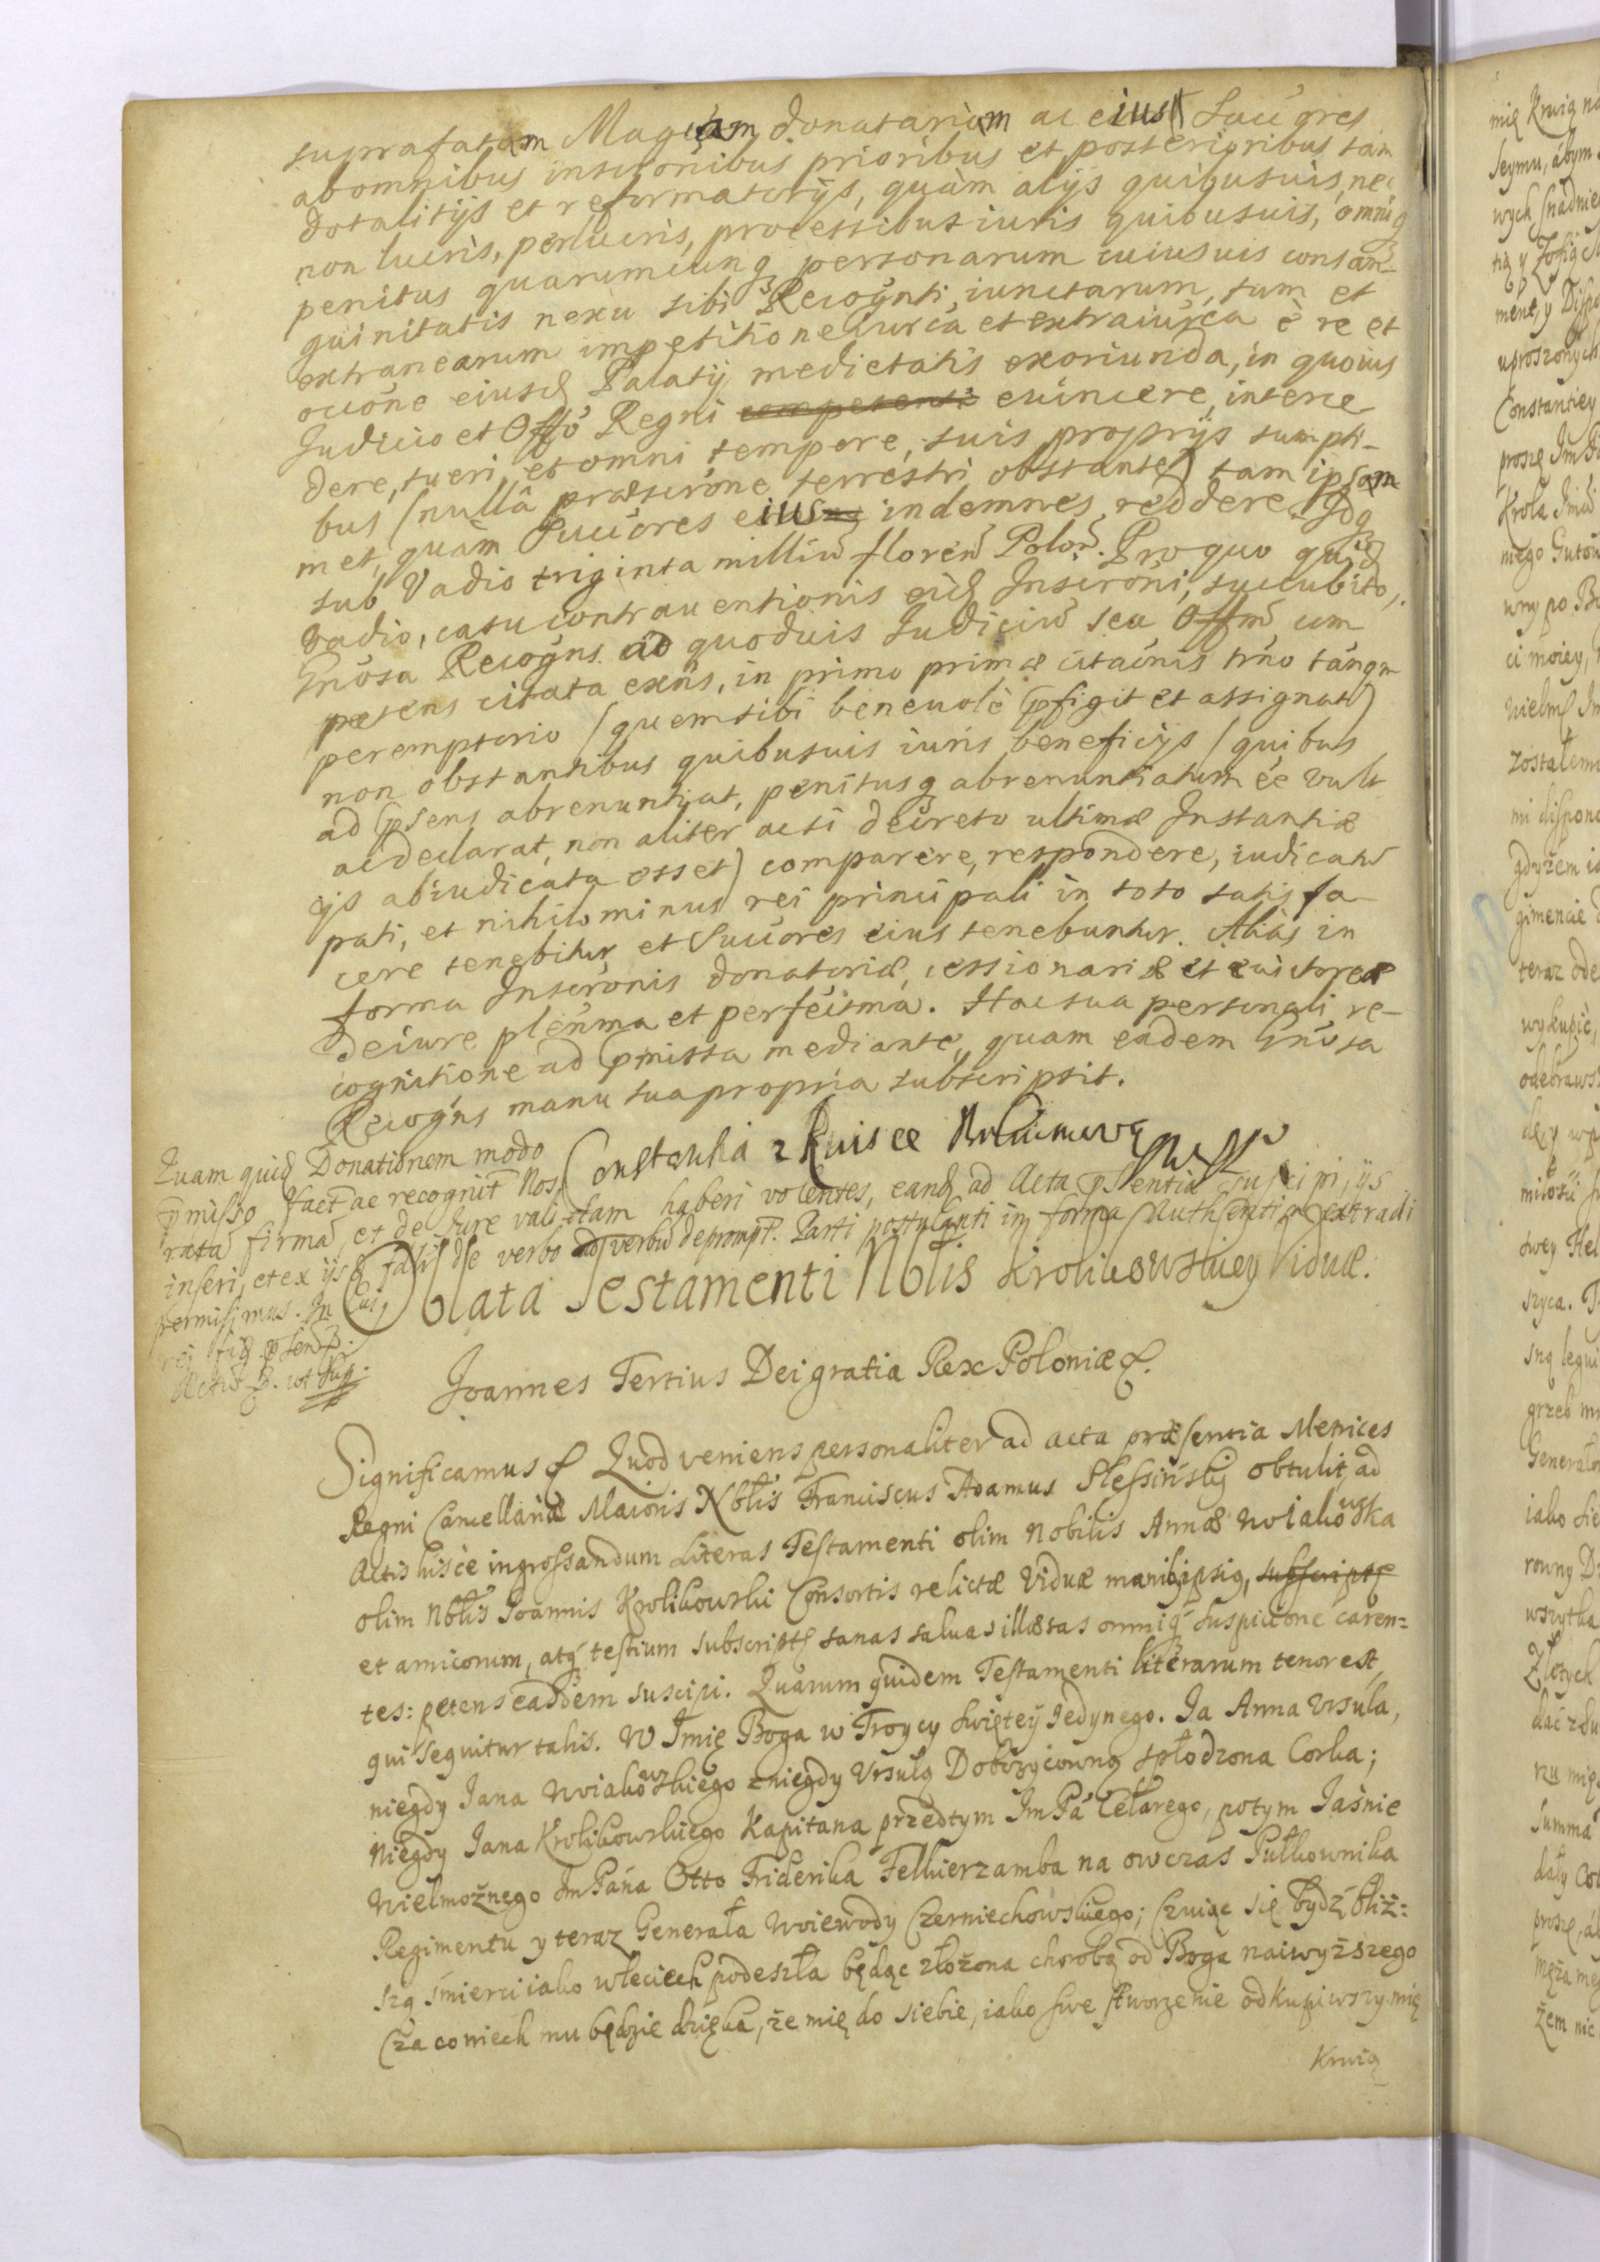 suprafatam Magcam donatariam ac eius Succres
ab omnibus inscronibus prioribus et posterioribus tam
dotalitijs et reformatorijs, quàm alijs quibusuis, nec
non lucris, perlucris, processibus iuris quibusuis, omniq
penitus quarumcunq personarum cuiusuis consan-
guinitatis nexu sibi Recognti iunctarum, tum et
extranearum impetitione iurca et extraiurca è re et
occone eiusd Palatij medietatis exoriunda, in quouis
Judicio et Offo Regni euincere, interce
dere, tueri, et omni tempore, suis proprijs sumpti-
bus (nullâ præscrone terrestri obstante) tam ipsam
met, quàm Succores eius indemnes reddere. Idq
sub Vadio triginta milliu florenu Polon. Pro quo quid
Vadio, casu contrauentionis eid Inscroni, succubito,
Gnosa Recogns ad quoduis Judiciu seu Offm com
petens citata exns, in primo primæ citaonis trno tanqm
peremptorio (quem sibi beneuolè pfigit et assignat)
non obstantibus quibusuis iuris beneficijs (quibus
ad psens abrenuntiat, penitusq abrenuntiatum ee vult
ac declarat, non aliter ac si decreto ultimæ Instantiæ
ijs abiudicata esset) comparere, respondere, iudicatu
pati, et nihilominus rei principali in toto satisfa-
cere tenebitur et Succores eius tenebuntur. Aliàs in
forma Inscronis donatoriæ, cessionariæ et euictoreæ
de iure plenma et perfectma. Hac sua personali re-
cognitione ad pmissa mediante, quam eadem Gnosa
Recogns manu sua propria subscripsit.
Constantia z
Quam quid Donationem modo
pmisso fact ac recognit Nos
rata firma, et de Jure validam haberi volentes, eand ad Acta psentia suscipi, ijs
inseri, et ex ijs de verbo ad verbu deprompt. Parti postulanti in forma Authentica extradi
permisimus. In Cuis
rei fid psend
Actu ut sup.
Oblata Testamenti Nblis Krolikowskiey Viduæ.
Joannes Tertius Dei gratia Rex Poloniæ &.
Significamus & Quod veniens personaliter ad acta præsentia Metrices
Regni Cancellariæ Maioris Nblis Franciscus Adamus Slessinskij obtulit, ad
Actis hisce ingrossandum Literas Testamenti olim Nobilis Annæ Woiakowska
olim Nblis Joannis Krolikowski Consortis relictæ Viduæ manib ipsig, subscriptæ
et amicorum, atq testium subscript sanas saluas illæsas omniq suspicione caren=
tes: petens easdem suscipi. Quarum quidem Testamenti literarum tenor est
qui sequitur talis. W Imię Boga w Troycy Swiętey Jedynego. Ja Anna Ursula,
niegdy Jana Woiakowskiego z niegdy Ursulą Dobrzycowną spłodzona Corka;
Niegdy Jana Krolikowskiego Kapitana przedtym Im Pa Cetarego, potym Jaśnie
Wielmożnego Im Pána Otto Friderika Felkierzamba na ow czás Pułkownika
Regimentu y teraz Generała Woiewody Czerniechowskiego; Czuiąc się bydź bliż:
szą śmierci iako w leciech podeszła będąc złożona chorobą od Boga naiwyższego
(za co niech mu będzie dzięka, że mię do siebie, iako swe stworzenie odkupiwszy mię
Krwią
mię Krwią
Seymu, ábym
wych snadnie
tą y Zofią
ment, y
uproszonych
Constantiey
proszę Im
Krola Jmci
mego
wny po
ci moiey,
Wielm
zostałem
mi dispono
gdyżem
gimencie
teraz ode
wykupić,
odebraws
miłości
swey
szyca.
grzeb
Generał
iako
rowny
wszytka
Złotych
dáć
Summa
dały
proszę,
męża me
żem nie